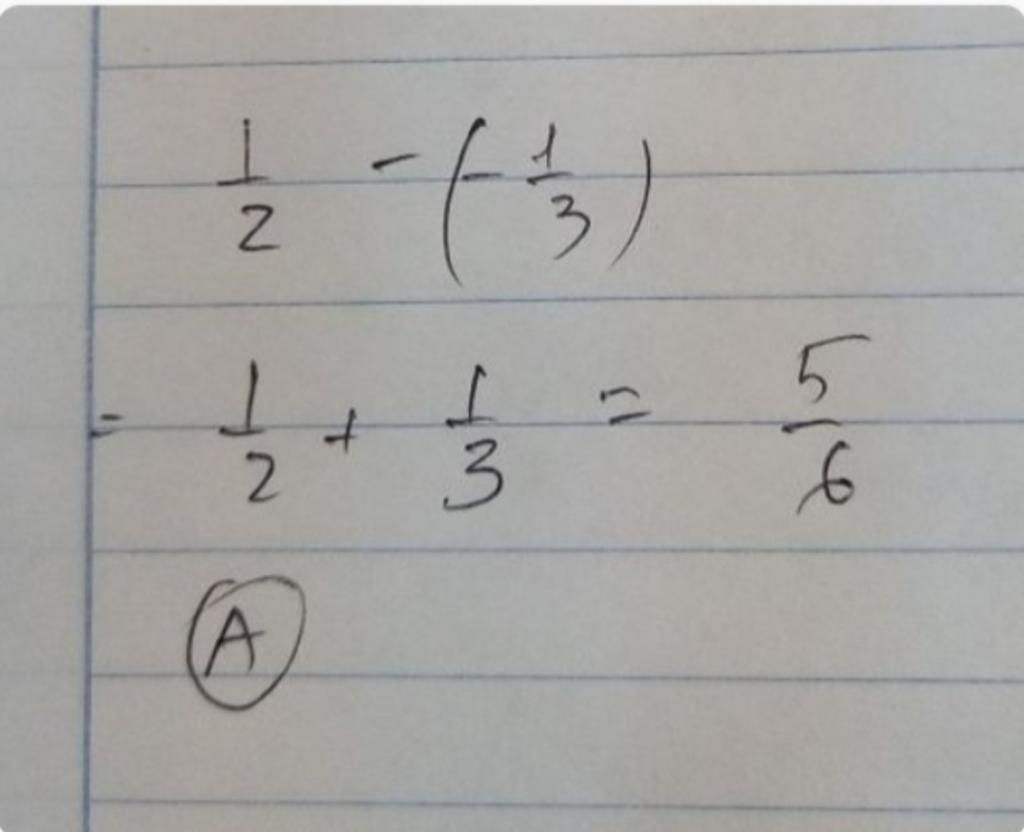 1/2 - (-1/3)
= 1/2 + 1/3 = 5/6
A